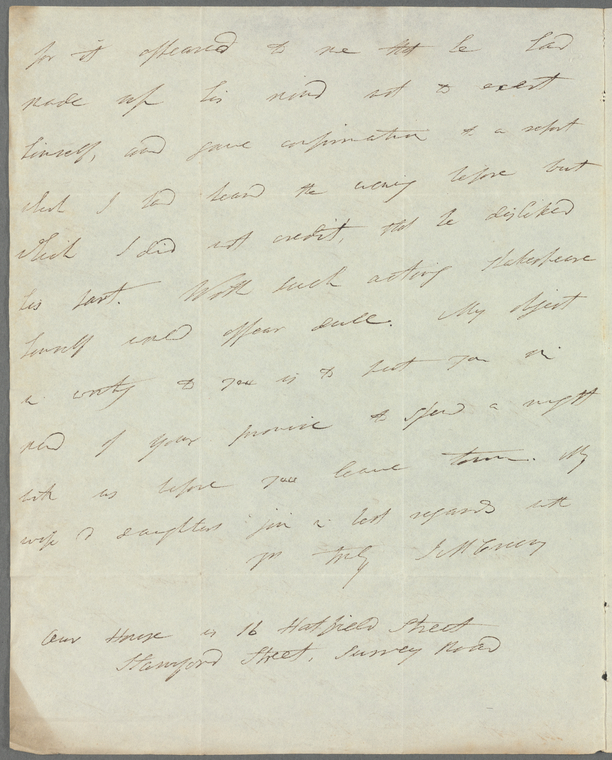 for it appeared to me that he had
made up his mind not to exert
himself, and gave confirmation to a report
which I had heard the evening before but
which I did not credit, that he disliked
his part. With such acting Shakespeare
himself would appear dull. My object
in writing to you is to put you in
mind of your promise to spend a night
with us before you leave town. My
wife & daughters join in best regards with
yrs truly J McCreery
Our House is 16 Hatfield Street
Stamford Street, Surrey Road